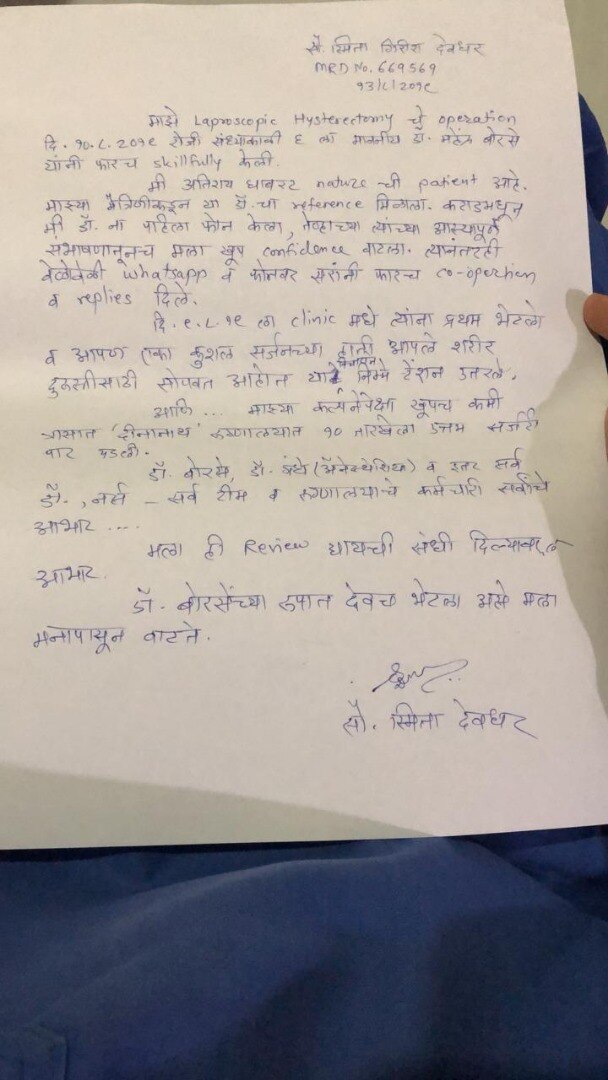 सौ. स्मिता गिरीश देवधर
MRD No. 669569
१३/८/२०१९
माझे Laproscopic Hysterectomy चे operation
दि. १०.८.२०१९ रोजी संध्याकाळी ६ ला माननीय डॉ. महेंद्र बोरसे
यांनी फारच skillfully केली.
मी अतिशय घाबरट nature ची patient आहे.
माझ्या मैत्रिणीकडून या डॉ. चा reference मिळाला. कराडमधून
मी डॉ. ना पहिला फोन केला, तेव्हाच्या त्यांच्या आस्थापूर्ण
संभाषणातूनच मला खूप confidence वाटला. त्यानंतरही
वेळोवेळी whatsapp व फोनवर सरांनी फारच co-operation
व replies दिले.
दि. ९.८.१९ ला clinic मधे त्यांना प्रथम भेटलो
व आपण एका कुशल सर्जनच्या हाती आपले शरीर
दुरुस्तीसाठी सोपवत आहोत निम्मे टेंशन उतरले.
आणि ... माझ्या कल्पनेपेक्षा खूपच कमी
त्रासात 'दीनानाथ' रुग्णालयात १० तारखेला उत्तम सर्जरी
पार पडली.
डॉ. बोरसे, डॉ. (अ‍ॅनेस्थेशिया) व इतर सर्व
डॉ., नर्स - सर्व टीम व रुग्णालयाचे कर्मचारी सर्वांचे
आभार ....
मला ही Review द्यायची संधी दिल्याबद्दल
आभार.
डॉ. बोरसेंच्या रुपात देवच भेटला असे मला
मनापासून वाटते.
सौ. स्मिता देवधर